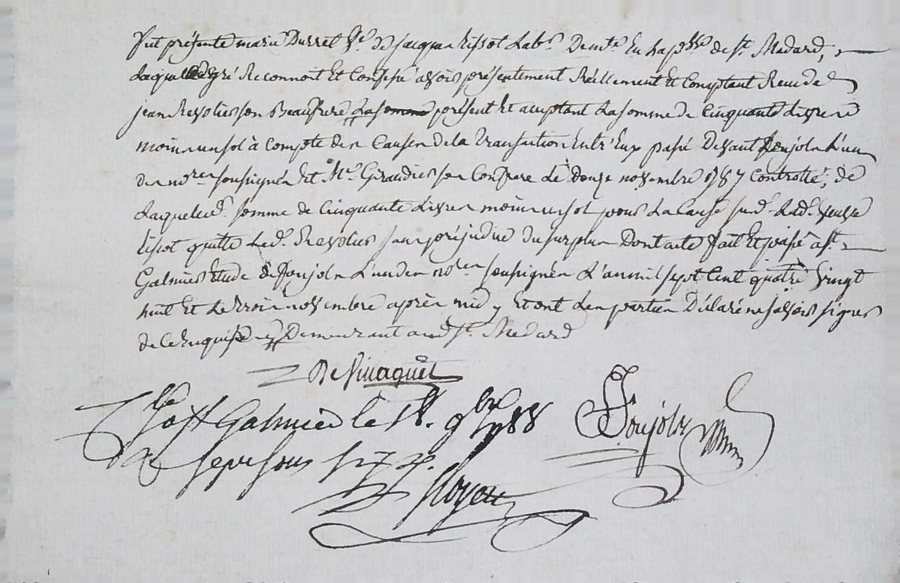 fut présente marie Durret Ve. de jacque tissot Lab.r Demt. En La p.sse de St. Medard,
Laquelle de gré Reconnoit Et Confesse avoir présentement Reellement Et Comptant Recu de
jean Revolier son Beaufrere La somme présent Et acceptant La somme de Cinquante Livres
moins un sol a Compte des Causes de la transaction Entr'Eux passé Devant Ponjoln L'un
des no.res soussignés Et Me. Giraudier son Confrere Le douze novembre 1787 Controllé, de
Laquelle d. somme de Cinquante Livres moins un sol pour La Cause sus d. Lad. veuve
tissot quitte Led. Revolier sans préjudice du surplus Dont acte fait Et passé a St.
Galmier Etude de Ponjoln L'un des no.res soussignés L'an mil sept Cent quatre vingt
huit Et Le trois novembre après midy Et ont Les parties Déclaré ne savoir signer
de ce Enquis Demeurant aud. St. Medard
Clé a St Galmier le 9bre 1788
sols